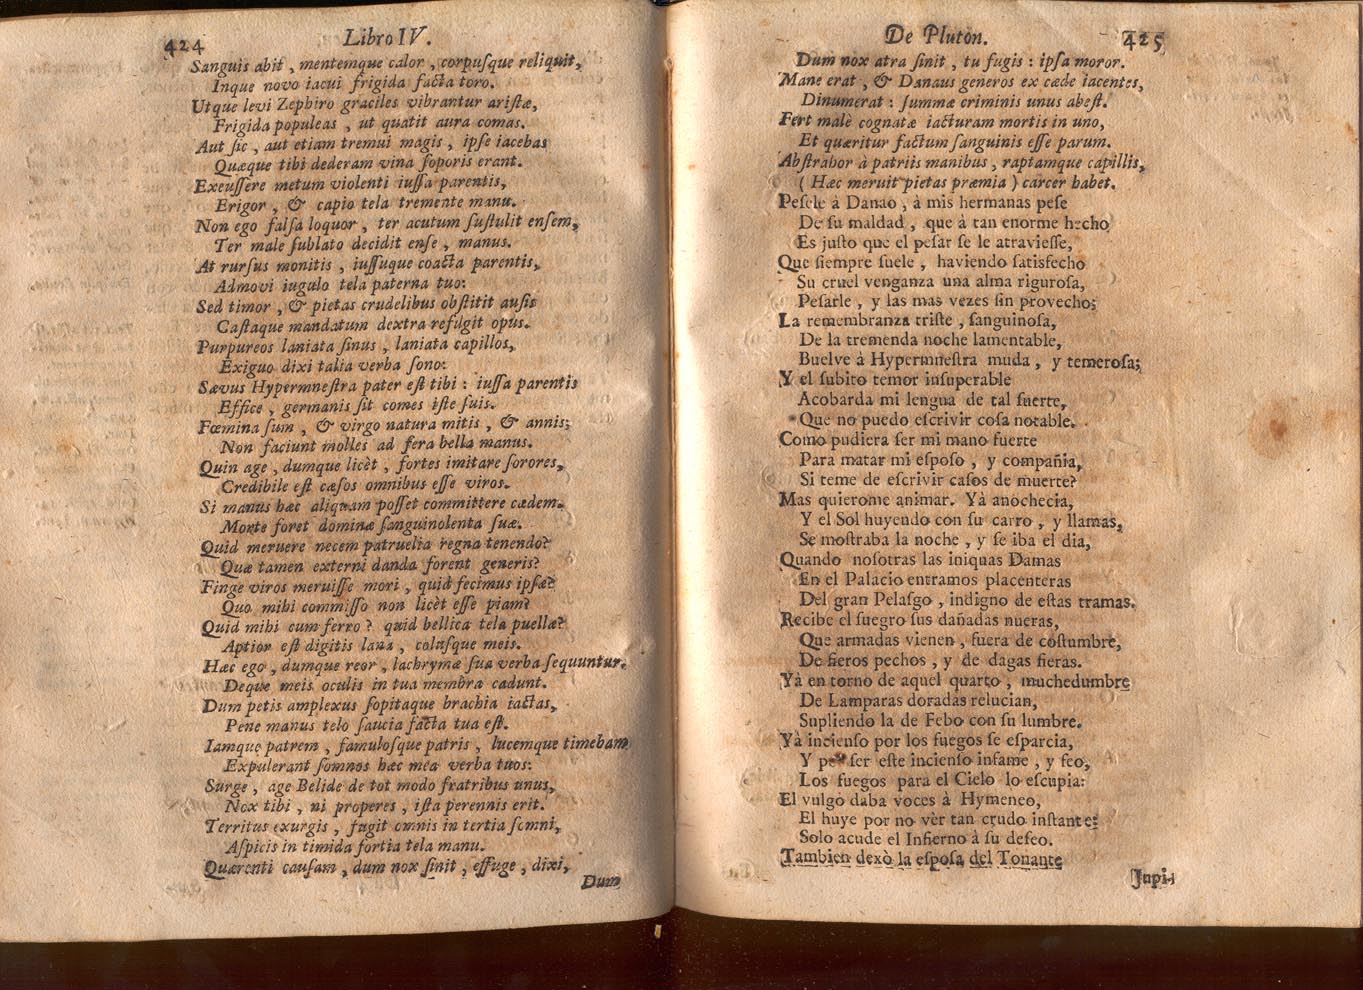 424
Libro IV.
Sanguis abit, mentemque calor, corpuſque reliquit,
Inque novo iacui frigida facta toro.
Utque levi Zephiro graciles vibrantur ariſtæ,
Frigida populeas, ut quatit aura comas.
Aut ſic, aut etiam tremui magis, ipſe iacebas
Quæque tibi dederam vina ſoporis erant.
Exeuſſere metum violenti iuſſa parentis,
Erigor, & capio tela tremente manu.
Non ego falſa loquor, ter acutum ſuſtulit enſem,
Ter male ſublato decidit enſe, manus.
At rurſus monitis, iuſſuque coacta parentis,
Admovi iugulo tela paterna tuo:
Sed timor, & pietas crudelibus obſtitit auſis
Caſtaque mandatum dextra refugit opus.
Purpureos laniata ſinus, laniata capillos,
Exiguo dixi talia verba ſono:
Sævus Hypermneſtra pater eſt tibi: iuſſa parentis
Effice, germanis ſit comes iſte ſuis.
Fœmina ſum, & virgo natura mitis, & annis;
Non faciunt molles ad fera bella manus.
Quin age, dumque licèt, fortes imitare ſorores,
Credibile eſt cæſos omnibus eſſe viros.
Si manus hæc aliquam poſſet committere cædem.
Morte foret dominæ ſanguinolenta ſuæ.
Quid meruere necem patruelia regna tenendo?
Quæ tamen externi danda forent generis?
Finge viros meruiſſe mori, quid fecimus ipſæ?
Quo mihi commiſſo non licèt eſſe piam?
Quid mihi cum ferro? quid bellica tela puellæ?
Aptior eſt digitis lana, coluſque meis.
Hæc ego, dumque reor, lachrymæ ſua verba ſequuntur.
Deque meis oculis in tua membra cadunt.
Dum petis amplexus ſopitaque brachia iactas,
Pene manus telo ſaucia facta tua eſt.
Iamque patrem, famuloſque patris, lucemque timebam
Expulerant ſomnos hæc mea verba tuos:
Surge, age Belide de tot modo fratribus unus,
Nox tibi, ni properes, iſta perennis erit.
Territus exurgis, fugit omnis in tertia ſomni,
Aſpicis in timida fortia tela manu.
Quærenti cauſam, dum nox ſinit, effuge, dixi,
Dum
De Plutòn.
425
Dum nox atra ſinit, tu fugis: ipſa moror.
Mane erat, & Danaus generos ex cæde iacentes,
Dinumerat: ſummæ criminis unus abeſt.
Fert malè cognatæ iacturam mortis in uno,
Et quæritur factum ſanguinis eſſe parum.
Abſtrahor à patriis manibus, raptamque capillis,
(Hæc meruit pietas præmia) carcer habet.
Peſele à Danao, à mis hermanas peſe
De ſu maldad, que à tan enorme hecho
Es juſto que el peſar ſe le atravieſſe,
Que ſiempre ſuele, haviendo ſatisfecho
Su cruel venganza una alma riguroſa,
Peſarle, y las mas vezes ſin provecho;
La remembranza triſte, ſanguinoſa,
De la tremenda noche lamentable,
Buelve à Hypermneſtra muda, y temeroſa;
Y el ſubito temor inſuperable
Acobarda mi lengua de tal ſuerte,
Que no puedo eſcrivir coſa notable.
Como pudiera ſer mi mano fuerte
Para matar mi eſpoſo, y compañia,
Si teme de eſcrivir caſos de muerte?
Mas quierome animar. Yà anochecia,
Y el Sol huyendo con ſu carro, y llamas,
Se moſtraba la noche, y ſe iba el dia,
Quando noſotras las iniquas Damas
En el Palacio entramos placenteras
Del gran Pelaſgo, indigno de eſtas tramas.
Recibe el ſuegro ſus dañadas nueras,
Que armadas vienen, fuera de coſtumbre,
De fieros pechos, y de dagas fieras.
Yà en torno de aquel quarto, muchedumbre
De Lamparas doradas relucian,
Supliendo la de Febo con ſu lumbre.
Yà incienſo por los fuegos ſe eſparcia,
Y ſer eſte incienſo infame, y feo,
Los fuegos para el Cielo lo eſcupia:
El vulgo daba voces à Hymeneo,
El huye por no vèr tan crudo inſtante:
Solo acude el Infierno à ſu deſeo.
Tambien dexò la eſpoſa del Tonante
Jupi-